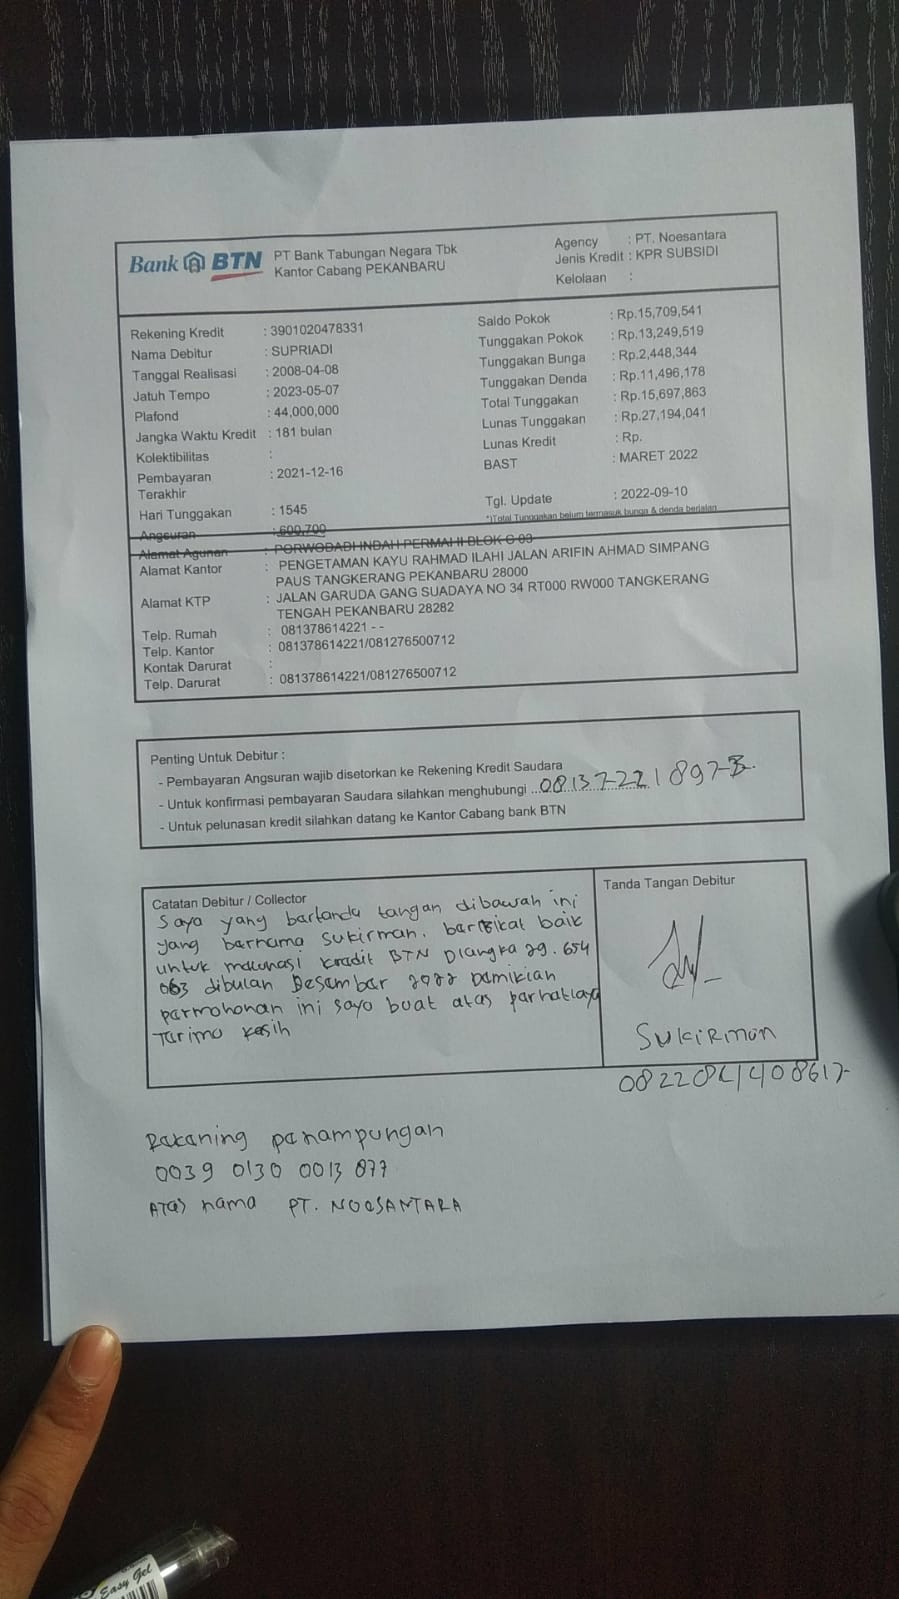 Bank BTN
PT Bank Tabungan Negara Tbk
Kantor Cabang PEKANBARU
Agency : PT. Noesantara
Jenis Kredit : KPR SUBSIDI
Kelolaan :
Rekening Kredit : 3901020478331
Nama Debitur : SUPRIADI
Tanggal Realisasi : 2008-04-08
Jatuh Tempo : 2023-05-07
Plafond : 44,000,000
Jangka Waktu Kredit : 181 bulan
Kolektibilitas :
Pembayaran Terakhir : 2021-12-16
Hari Tunggakan : 1545
Angsuran : 600,700
Saldo Pokok : Rp.15,709,541
Tunggakan Pokok : Rp.13,249,519
Tunggakan Bunga : Rp.2,448,344
Tunggakan Denda : Rp.11,496,178
Total Tunggakan : Rp.15,697,863
Lunas Tunggakan : Rp.27,194,041
Lunas Kredit : Rp.
BAST : MARET 2022
Tgl. Update : 2022-09-10
*)Total Tunggakan belum termasuk bunga & denda berjalan
Alamat Agunan : PORWODADI INDAH PERMAI II BLOK C 03
Alamat Kantor : PENGETAMAN KAYU RAHMAD ILAHI JALAN ARIFIN AHMAD SIMPANG
PAUS TANGKERANG PEKANBARU 28000
Alamat KTP : JALAN GARUDA GANG SUADAYA NO 34 RT000 RW000 TANGKERANG
TENGAH PEKANBARU 28282
Telp. Rumah : 081378614221 - -
Telp. Kantor : 081378614221/081276500712
Kontak Darurat :
Telp. Darurat : 081378614221/081276500712
Penting Untuk Debitur :
- Pembayaran Angsuran wajib disetorkan ke Rekening Kredit Saudara
- Untuk konfirmasi pembayaran Saudara silahkan menghubungi ...081372218973.
- Untuk pelunasan kredit silahkan datang ke Kantor Cabang bank BTN
Catatan Debitur / Collector
Saya yang bartanda tangan dibawah ini
yang barnama Sukirman. baritikat baik
untuk malunasi kradit BTN Diangka 29.654
063 dibulan Desambar 2022 Damikian
parmohonan ini saya buat atas parhatiaya
Tarima kasih
Tanda Tangan Debitur
SUKIRMAN
0822841408617
Rakaning panampungan
0039 0130 0013 877
Atas nama PT. NOESANTARA
Easy Gel